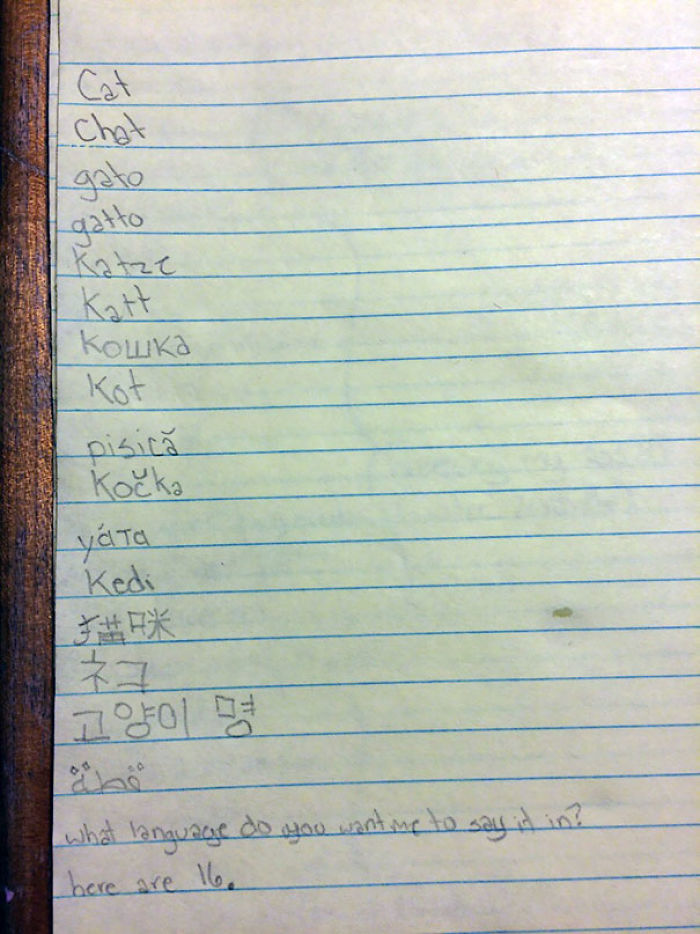 Cat
Chat
gato
gatto
Katze
Katt
кошка
Kot
pisică
Kočka
γάτα
Kedi
猫咪
ネコ
고양이 명
what language do you want me to say it in?
here are 16.